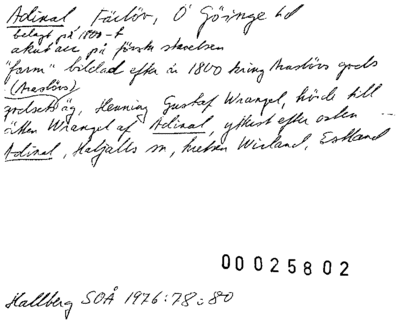 Adinal Färlöv, Ö Göinge hd
belagt på 1800-t
akut acc på första stavelsen
"farm" bildad efter år 1800 kring Araslövs gods
(Araslövs)
godsets äg, Henning Gustaf Wrangel, hörde till
ätten Wrangel af Adinal, ytterst efter orten
Adinal, Haljalls sn, kretsen Wierland, Estland
00025802
Hallberg SOÅ 1976:78-80